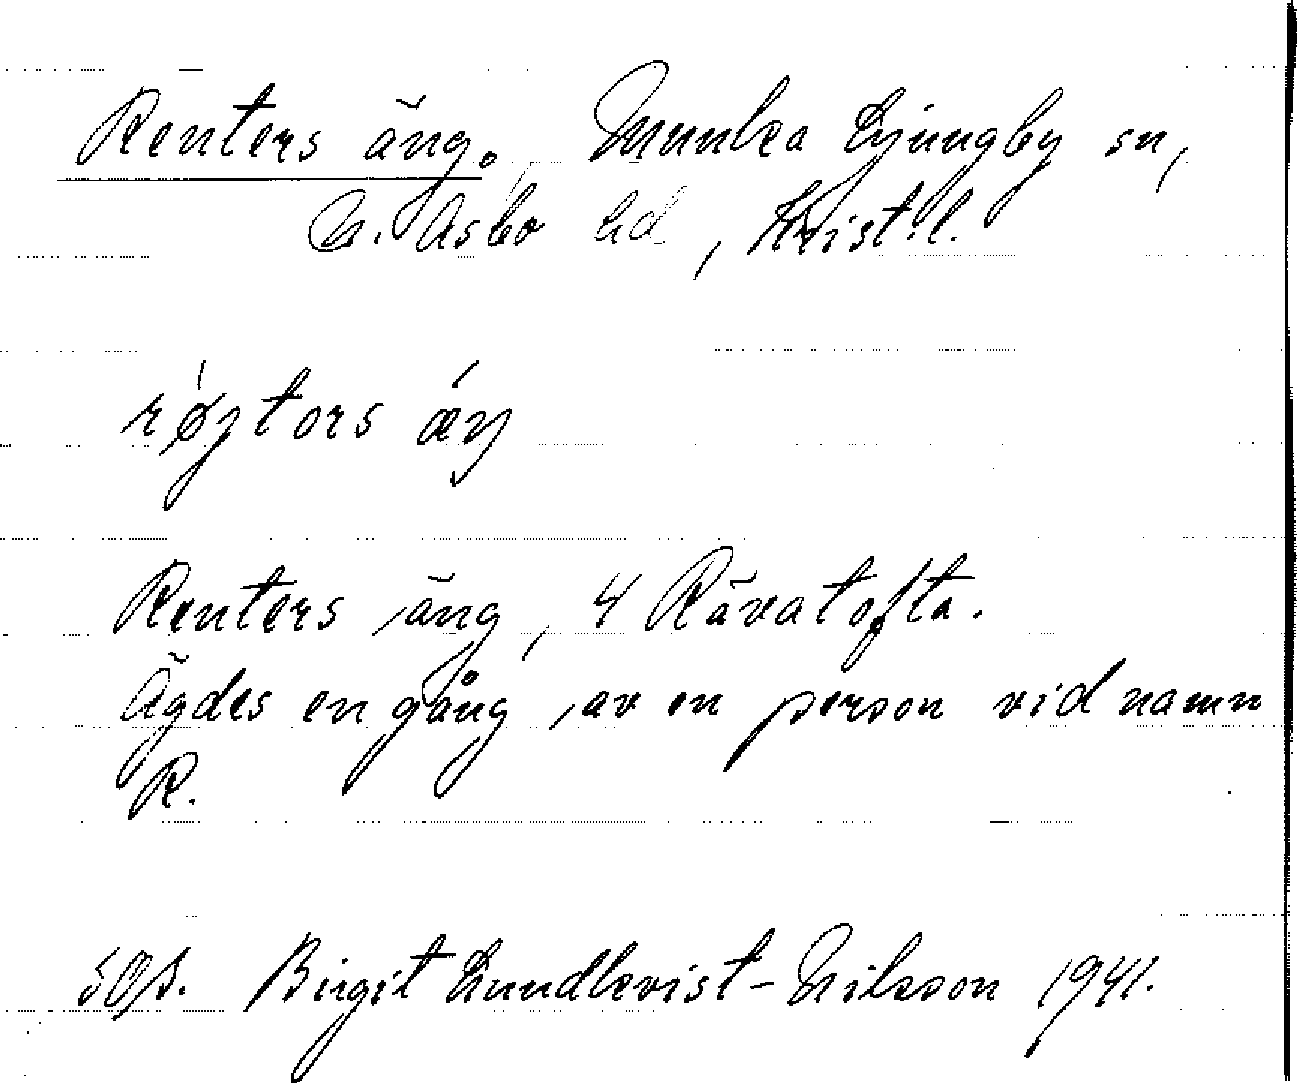 Renters äng. Munka Ljungby sn,
N. Åsbo hd, Krist. l.
Renters äng, 4 Rävatofta.
Ägdes en gång av en person vid namn
R.
Birgit Lundkvist-Nilsson 1941.